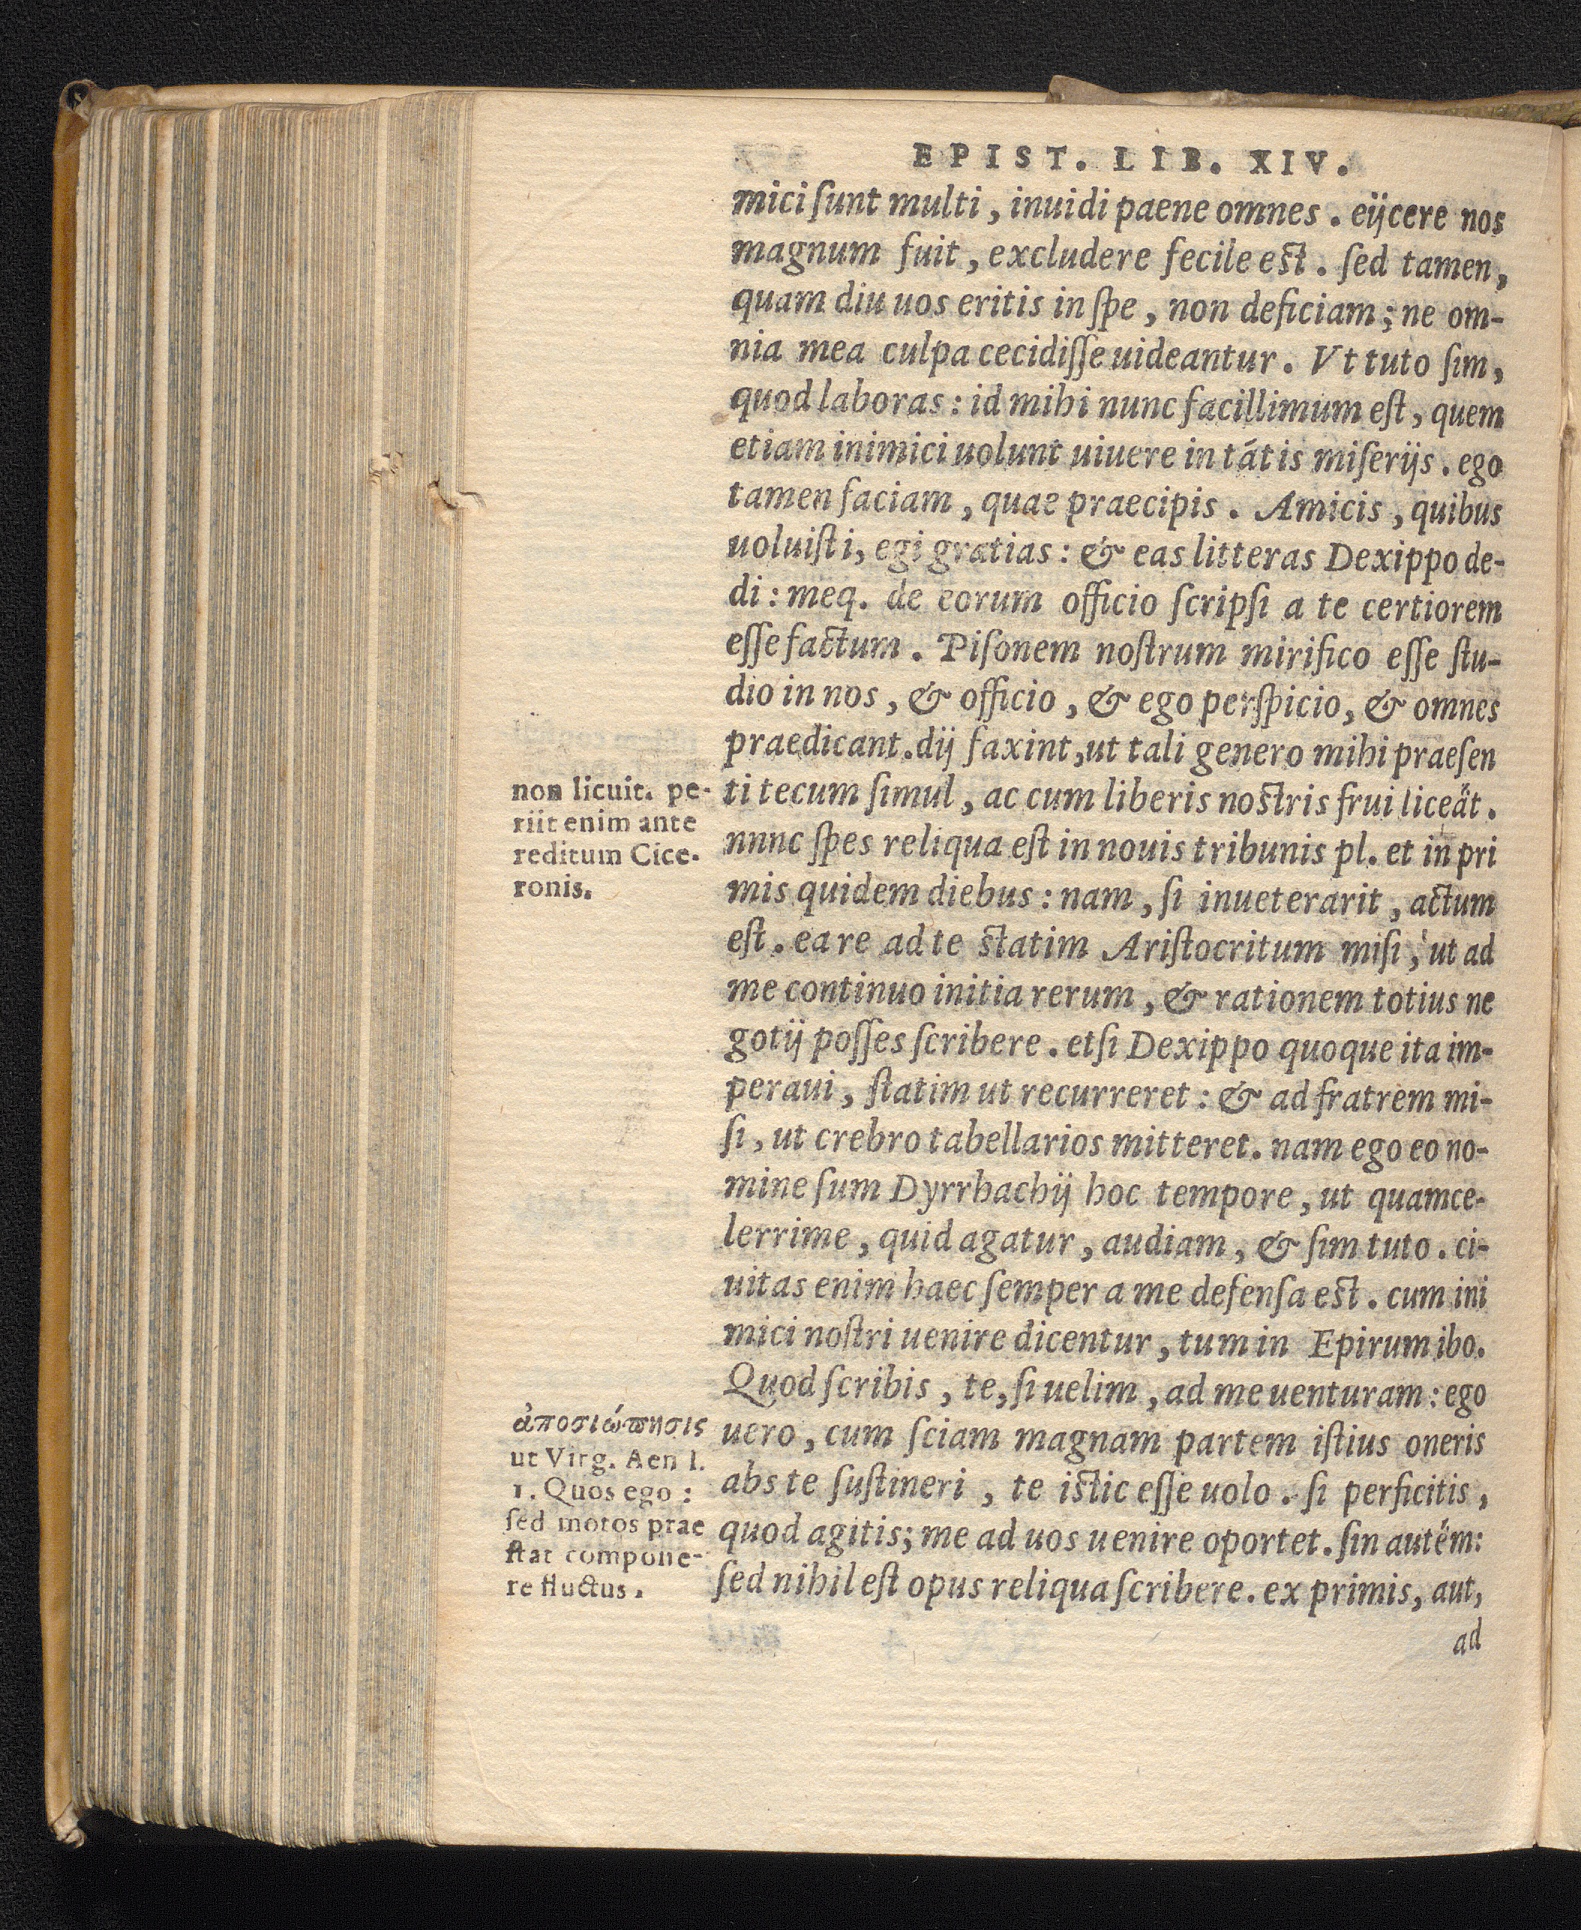 EPIST. LIB. XIV.
mici ſunt multi, inuidi paene omnes. eijcere nos
magnum fuit, excludere fecile est. ſed tamen,
quam diu uos eritis in ſpe, non deficiam; ne om-
nia mea culpa cecidiſſe uideantur. Vt tuto ſim,
quod laboras: id mihi nunc facillimum eſt, quem
etiam inimici uolunt uiuere in tátis miſerijs. ego
tamen faciam, quae praecipis. Amicis, quibus
uoluiſti, egi gratias: & eas litteras Dexippo de-
di: meq. de eorum officio ſcripſi a te certiorem
eſſe factum. Piſonem noſtrum mirifico eſſe ſtu-
dio in nos, & officio, & ego perſpicio, & omnes
praedicant. dij faxint, ut tali genero mihi praeſen
ti tecum ſimul, ac cum liberis nostris frui liceat.
nnnc ſpes reliqua eſt in nouis tribunis pl. et in pri
mis quidem diebus: nam, ſi inueterarit, actum
eſt. ea re ad te statim Ariſtocritum miſi, ut ad
me continuo initia rerum, & rationem totius ne
gotij poſſes ſcribere. etſi Dexippo quoque ita im-
peraui, ſtatim ut recurreret: & ad fratrem mi-
ſi, ut crebro tabellarios mitteret. nam ego eo no-
mine ſum Dyrrhachij hoc tempore, ut quamce-
lerrime, quid agatur, audiam, & ſim tuto. ci-
uitas enim haec ſemper a me defenſa est. cum ini
mici noſtri uenire dicentur, tum in Epirum ibo.
Quod ſcribis, te, ſi uelim, ad me uenturam: ego
uero, cum ſciam magnam partem iſtius oneris
abs te ſuſtineri, te istic eſſe uolo. ſi perficitis,
quod agitis; me ad uos uenire oportet. ſin autem:
ſed nihil eſt opus reliqua ſcribere. ex primis, aut,
ad
non licuit. pe-
riit enim ante
reditum Cice-
ronis.
ἀποσιώπησις
ut Virg. Aen l.
1. Quos ego:
ſed motos prae
ſtat compone-
re fluctus.